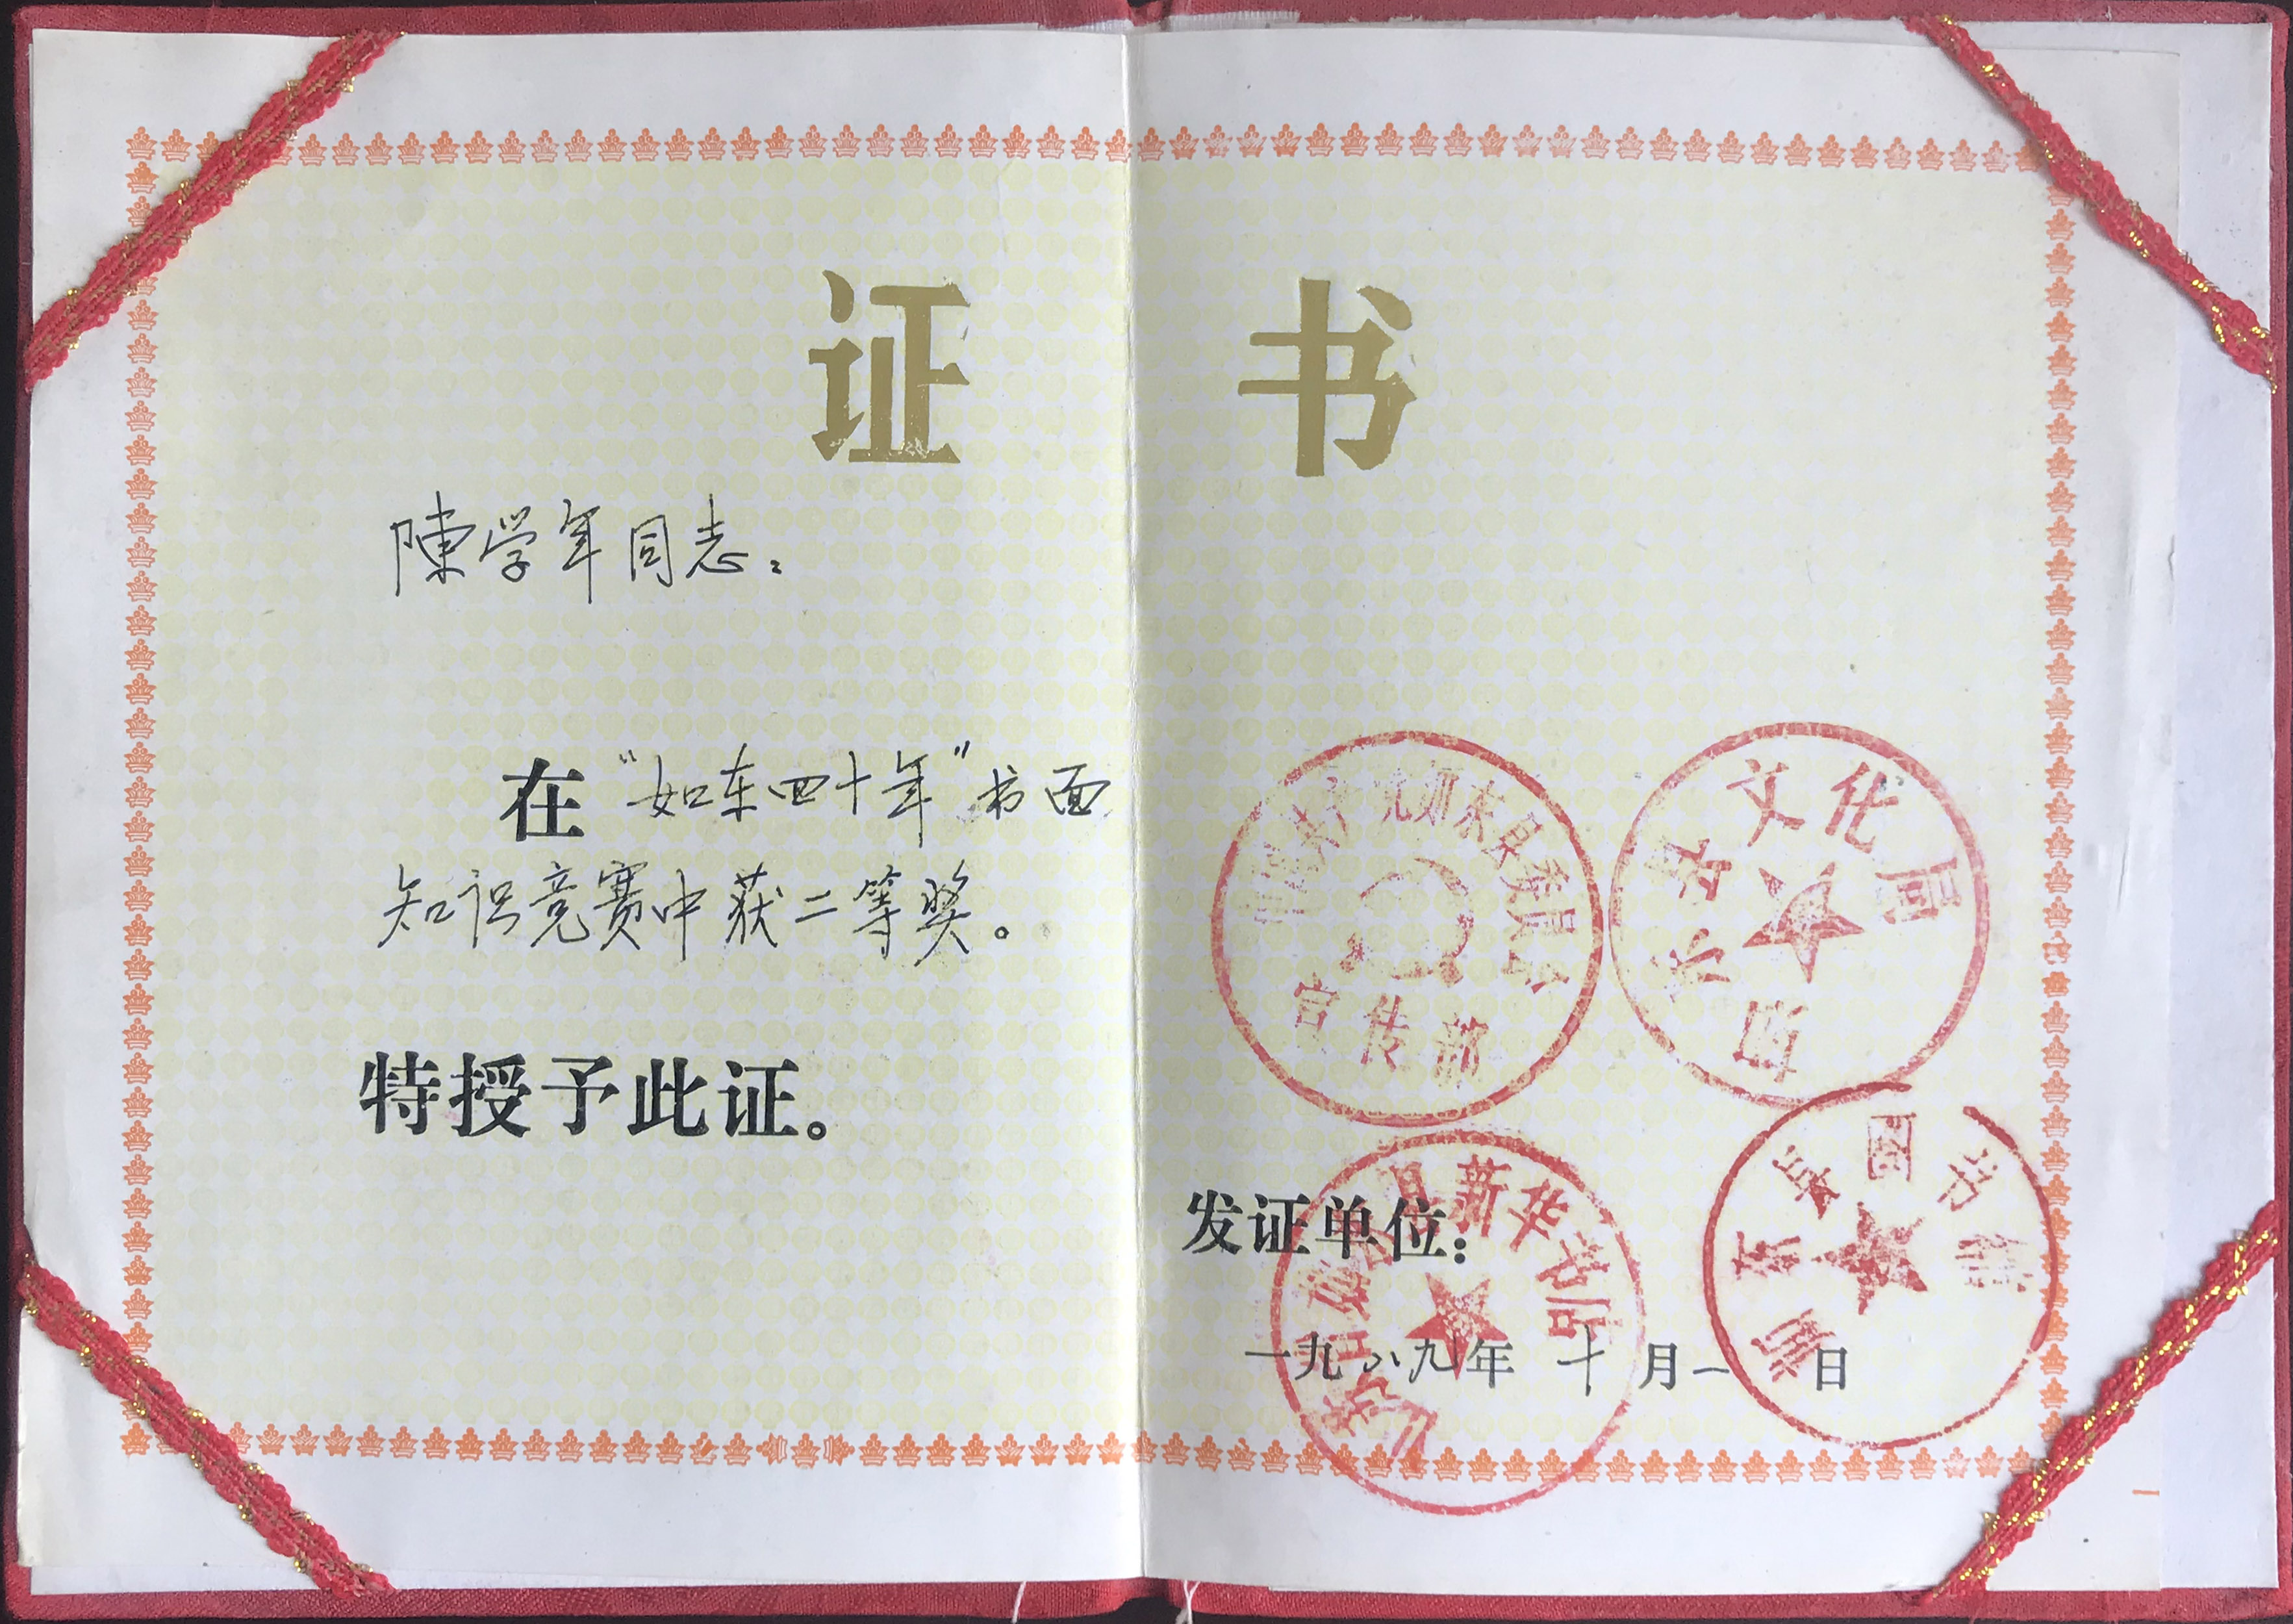 证书
陳学年同志：
在“如东四十年”书面
知识竞赛中获二等奖。
特授予此证。
中国共产党如东县委员会
宣传部
如东县文化局
江苏如东县新华书店
如东县图书馆
发证单位：
一九八九年十月一日